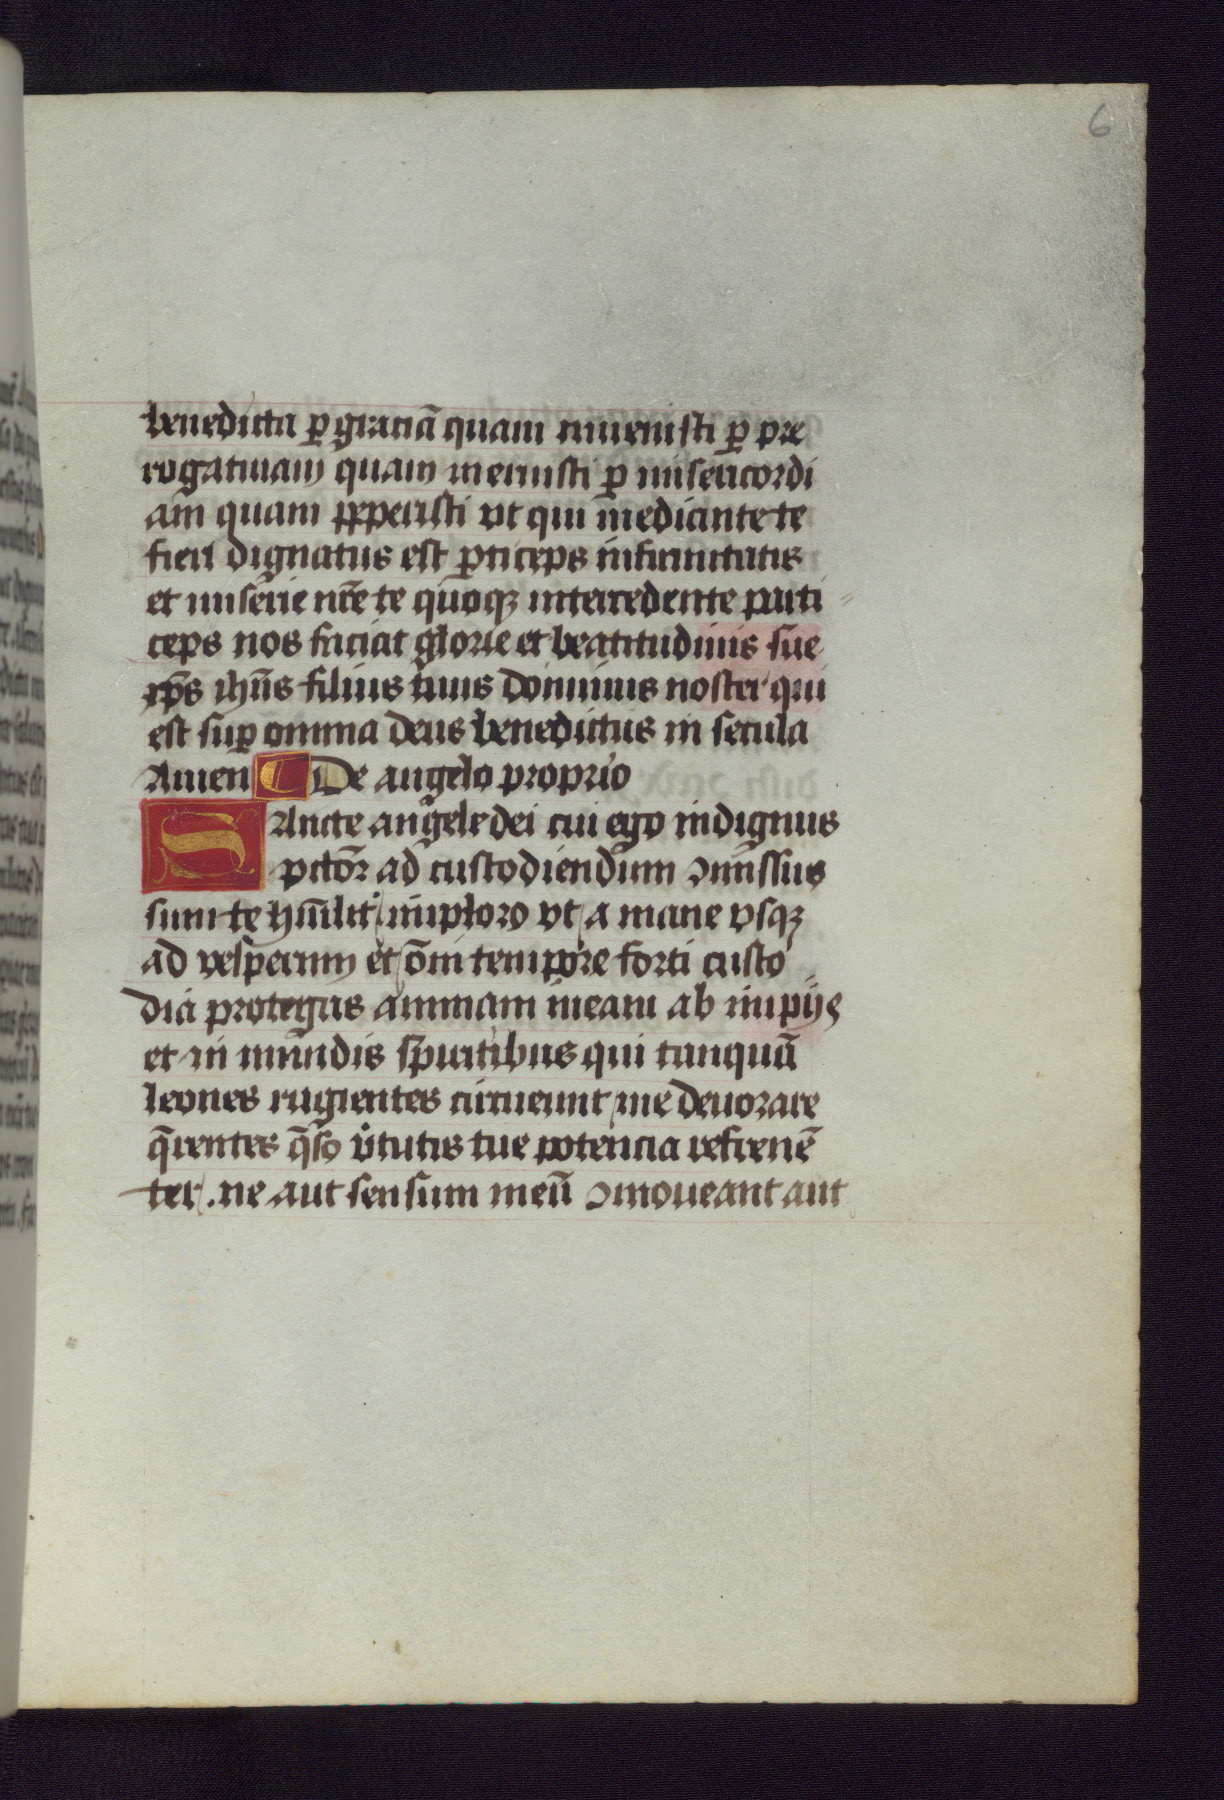 6
benedicta ꝑ graciā quam inuenisti ꝑ pre
rogatiuam quam meruisti ꝑ misericordi
am quam peperisti vt qui mediante te
fieri dignatus est ꝑticeps infirmitatis
et miserie nr̄e te quoqꝫ intercedente parti
ceps nos faciat glorie et beatitudinis sue
xp̄s ih̄us filius tuus dominus noster qui
est suꝑ omnia deus benedictus in secula
Amen De angelo proprio
SAncte angele dei cui ego indignus
pctōr ad custodiendum ꝯmissus
sum te hūilit' imploro vt a mane vsqꝫ
ad vesperum et ōm̄i tempore forti custo
dia protegas animam meam ab impijs
et in mundis spiritibus qui tanquā
leones rugientes circueunt me deuorare
q̄rentes q̄so v̓tutis tue potencia refrenē
ter . ne aut sensum meū ꝯmoueant aut